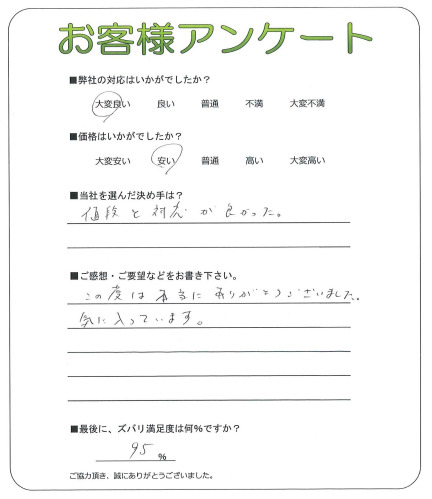 お客様アンケート
■弊社の対応はいかがでしたか？
大変良い 良い 普通 不満 大変不満
■価格はいかがでしたか？
大変安い 安い 普通 高い 大変高い
■当社を選んだ決め手は？
値段と対応が良かった。
■ご感想・ご要望などをお書き下さい。
この度は本当にありがとうございました。
気に入っています。
■最後に、ズバリ満足度は何％ですか？
95 ％
ご協力頂き、誠にありがとうございました。